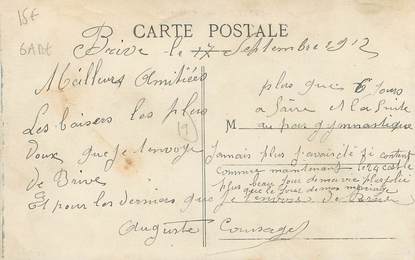 15€
GARE
CARTE POSTALE
Brive le 17 Septembre 1912
Meilleurs Amitiées
Les baisers les plus
doux que je t'envoye
de Brive
Et pour les derniers que je t'envoie de Brive
Auguste
plus que 6 Jours
a faire et la fuite
M au pas gymnastique
Jamais plus j'avais été si content
comme maintenant
plus beau jour de ma vie plus
que le jour de mon mariage